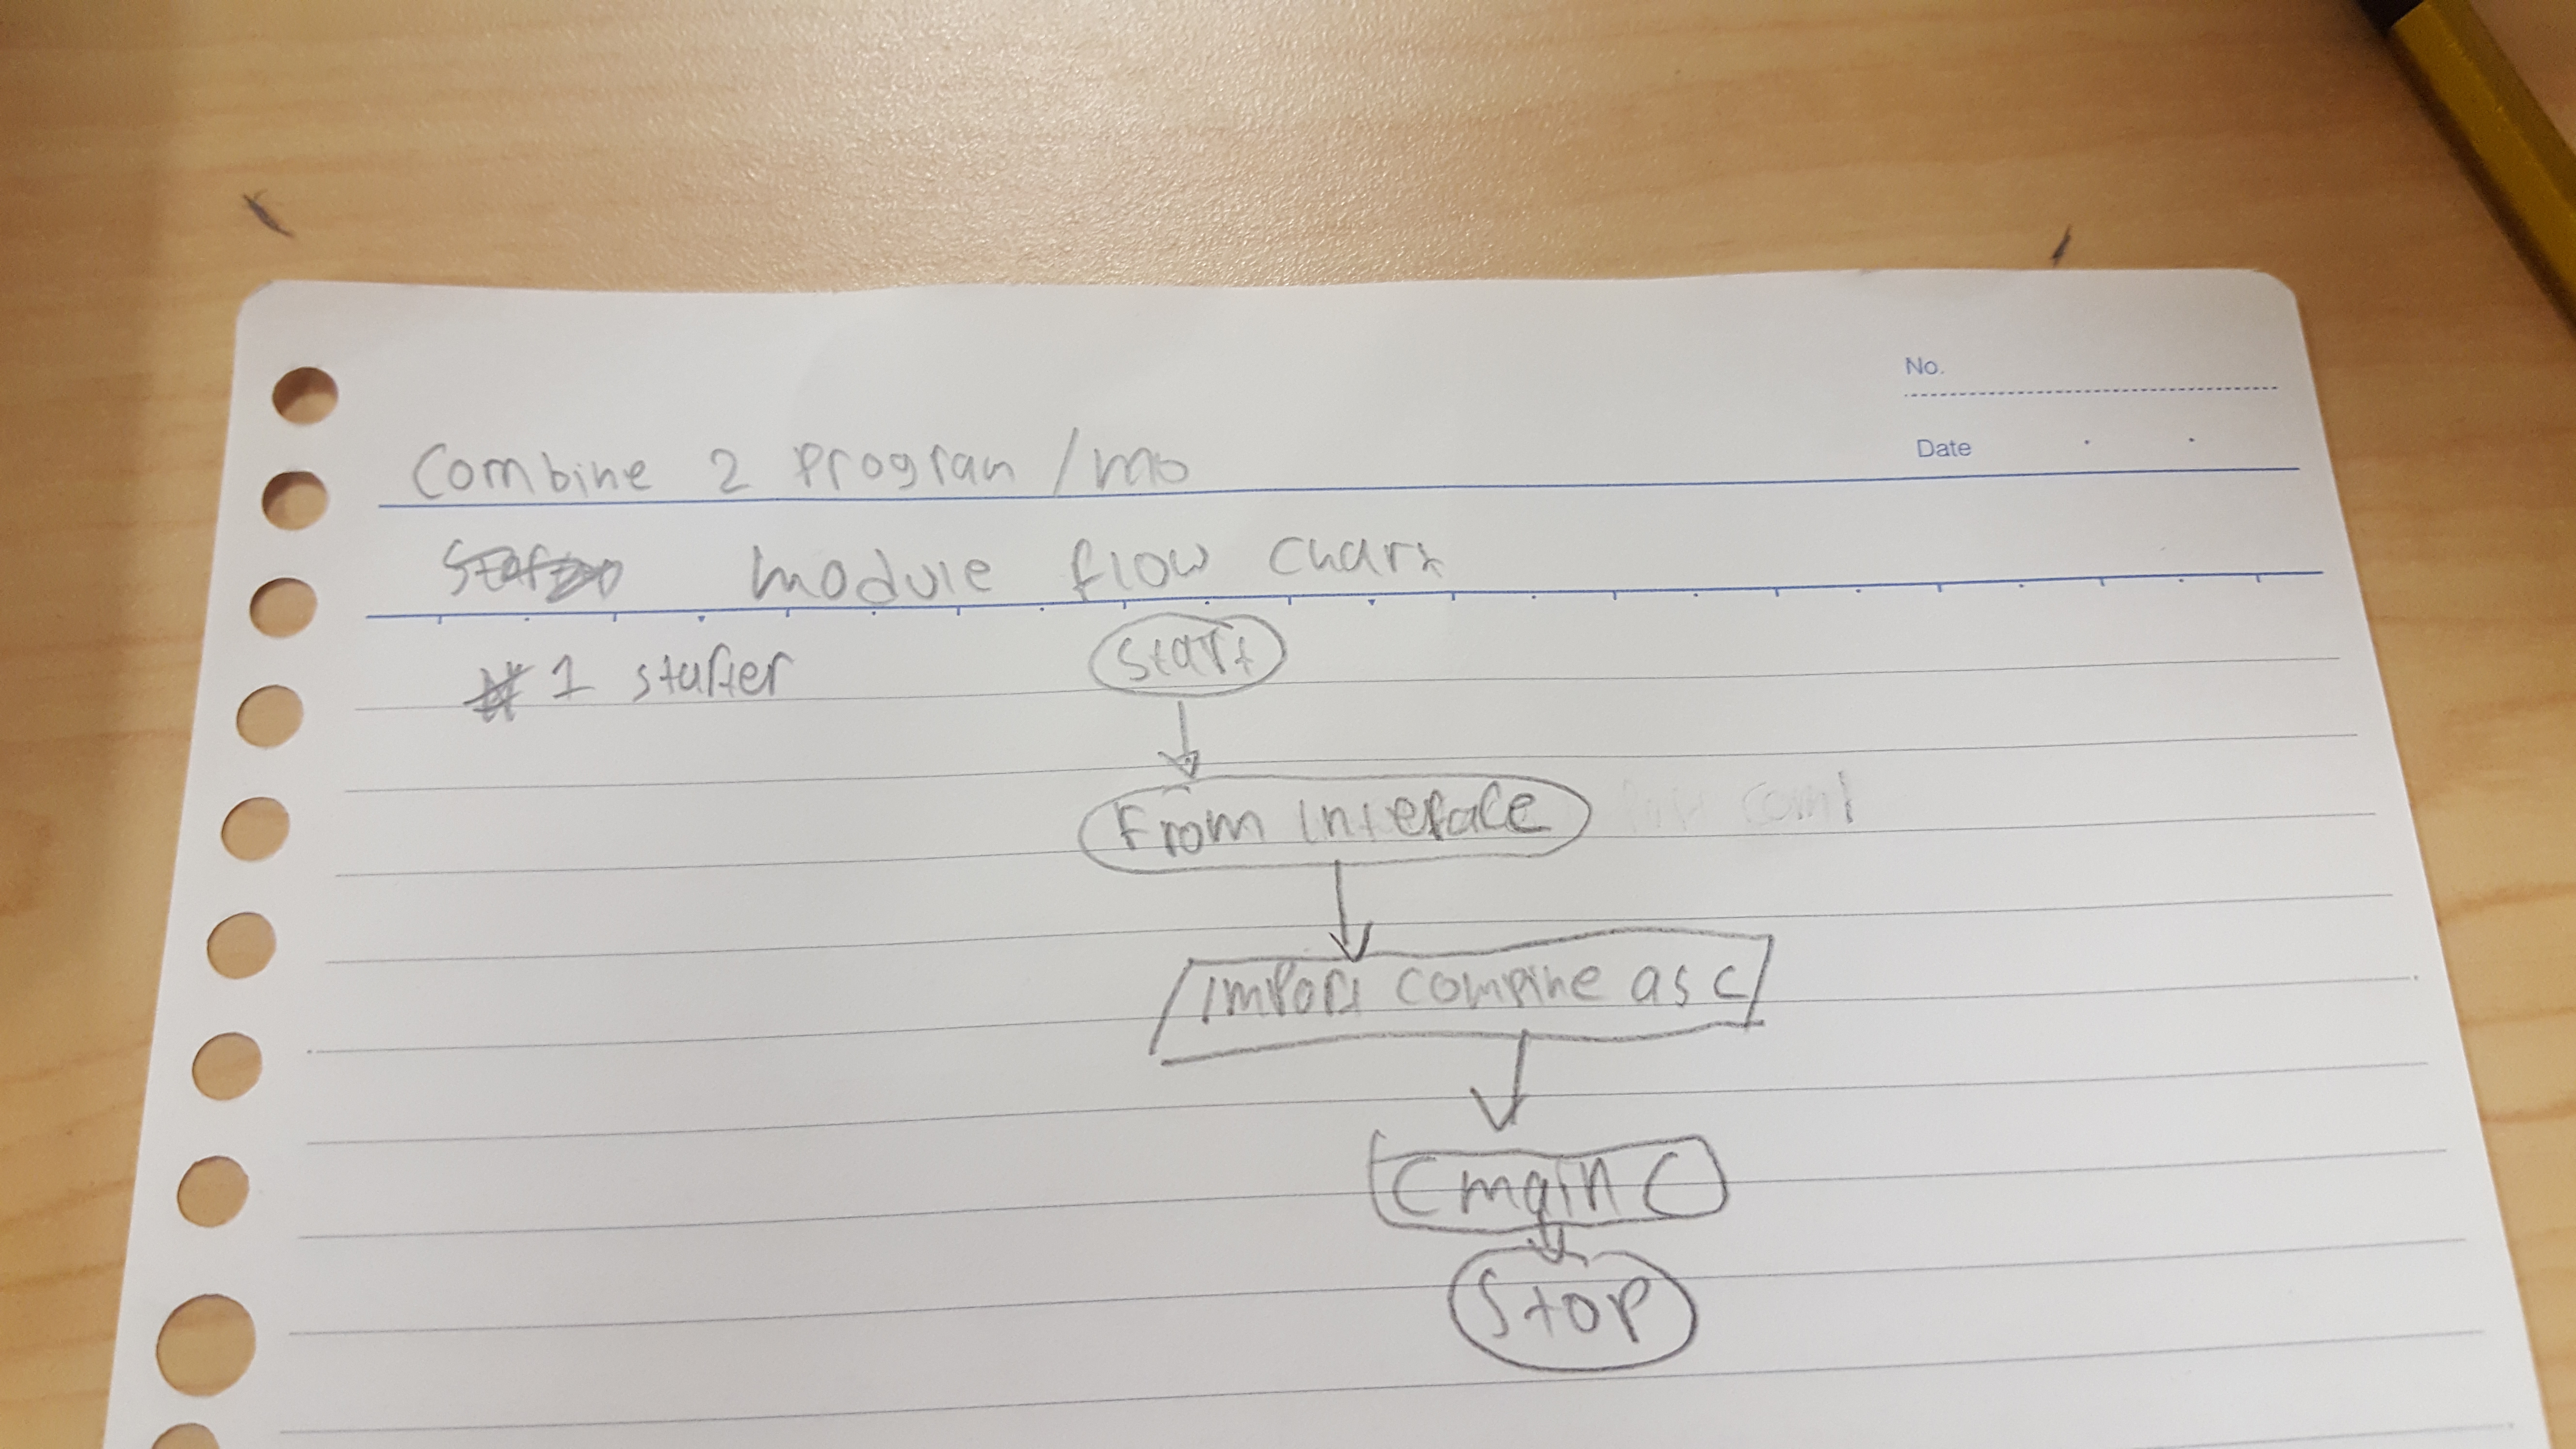 No.
Date
Combine 2 program /mo
module flow chart
#1 starter
Start
From Interface
import compine as c
C main C
Stop